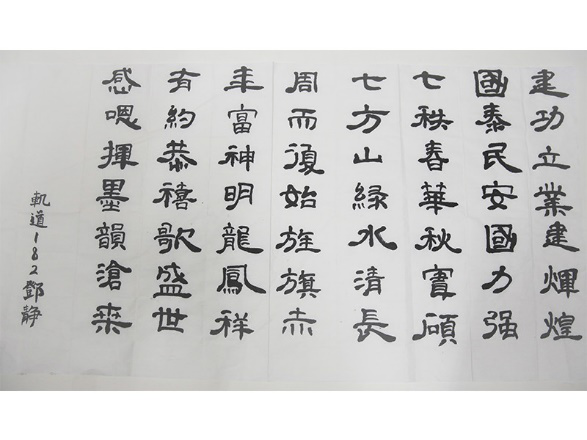 建功立業建輝煌
國泰民安國力强
七秩春華秋實碩
七方山緑水清長
周而復始旌旗赤
年富神明龍鳳祥
有約恭禧歌盛世
感嗯揮墨韻滄桒
軌道182鄧静